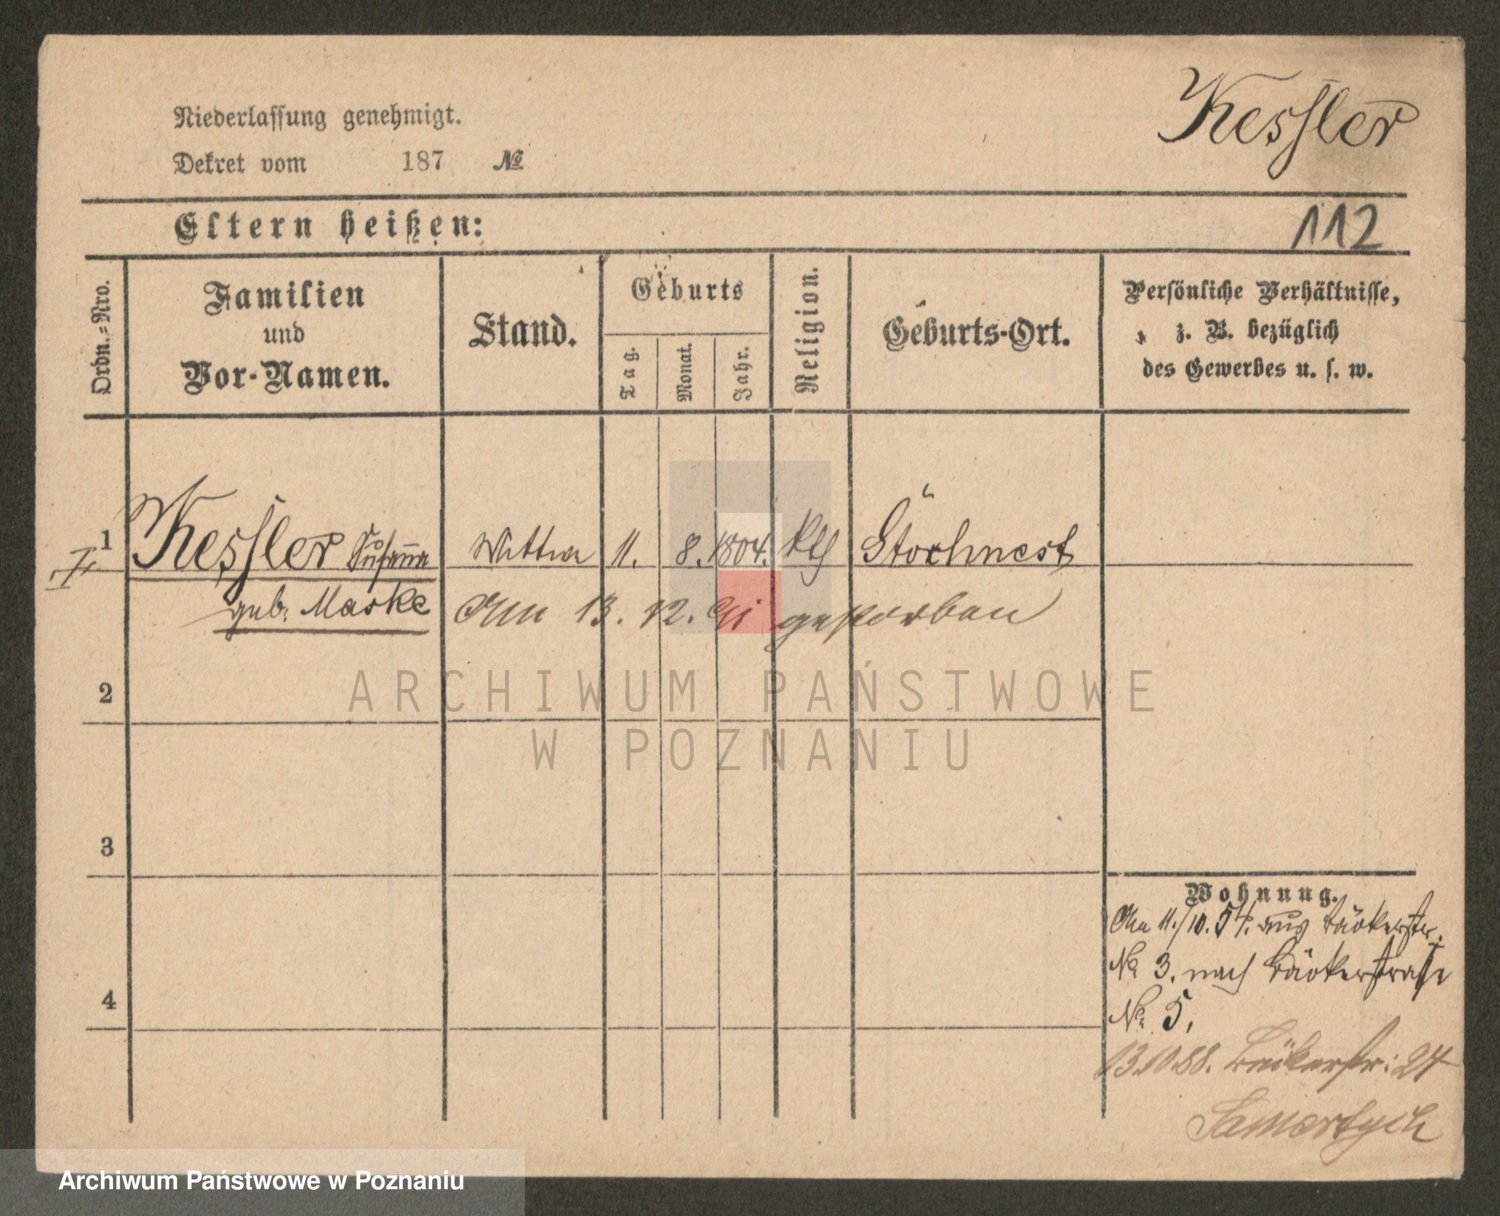 Kessler
Niederlassung genehmigt.
Dekret vom 187 №
Eltern heißen:
112
Ordn.=Nro.
Familien
und
Vor-Namen.
Stand.
Geburts
Tag.
Monat.
Jahr.
Religion.
Geburts-Ort.
Persönliche Verhältnisse,
z. B. bezüglich
des Gewerbes u. s. w.
I
1 Kessler Susanna Wittwe 11. 8. 1804. kth Storchnest
geb. Maske Am 13. 12. 91 gestorben
2
3
4
Wohnung.
Am 11./10. 54. aus Bäckerstr.
No 3. nach Bäckerstraße
No 5.
13.10.88. Bäckerstr: 24
ARCHIWUM PAŃSTWOWE
W POZNANIU
Archiwum Państwowe w Poznaniu